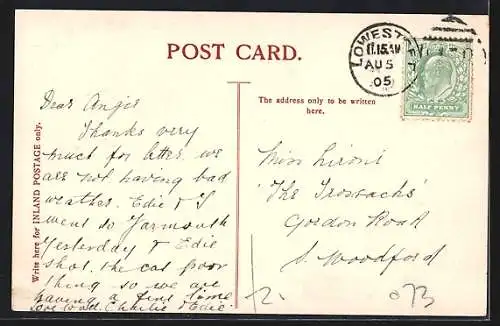 POST CARD.
LOWESTOFT
11.15 AM
AU 5
05
HALF PENNY
The address only to be written
here.
Write here for INLAND POSTAGE only.
Dear Angie
Thanks very
much for letter. we
are not having bad
weather. Edie & I
went to Yarmouth
Yesterday & Edie
shot. the cat poor
thing so we are
having a fine time
love to all. Charlie & Edie
Miss
"The Trossachs"
Gordon Road
S. Woodford
2.
073